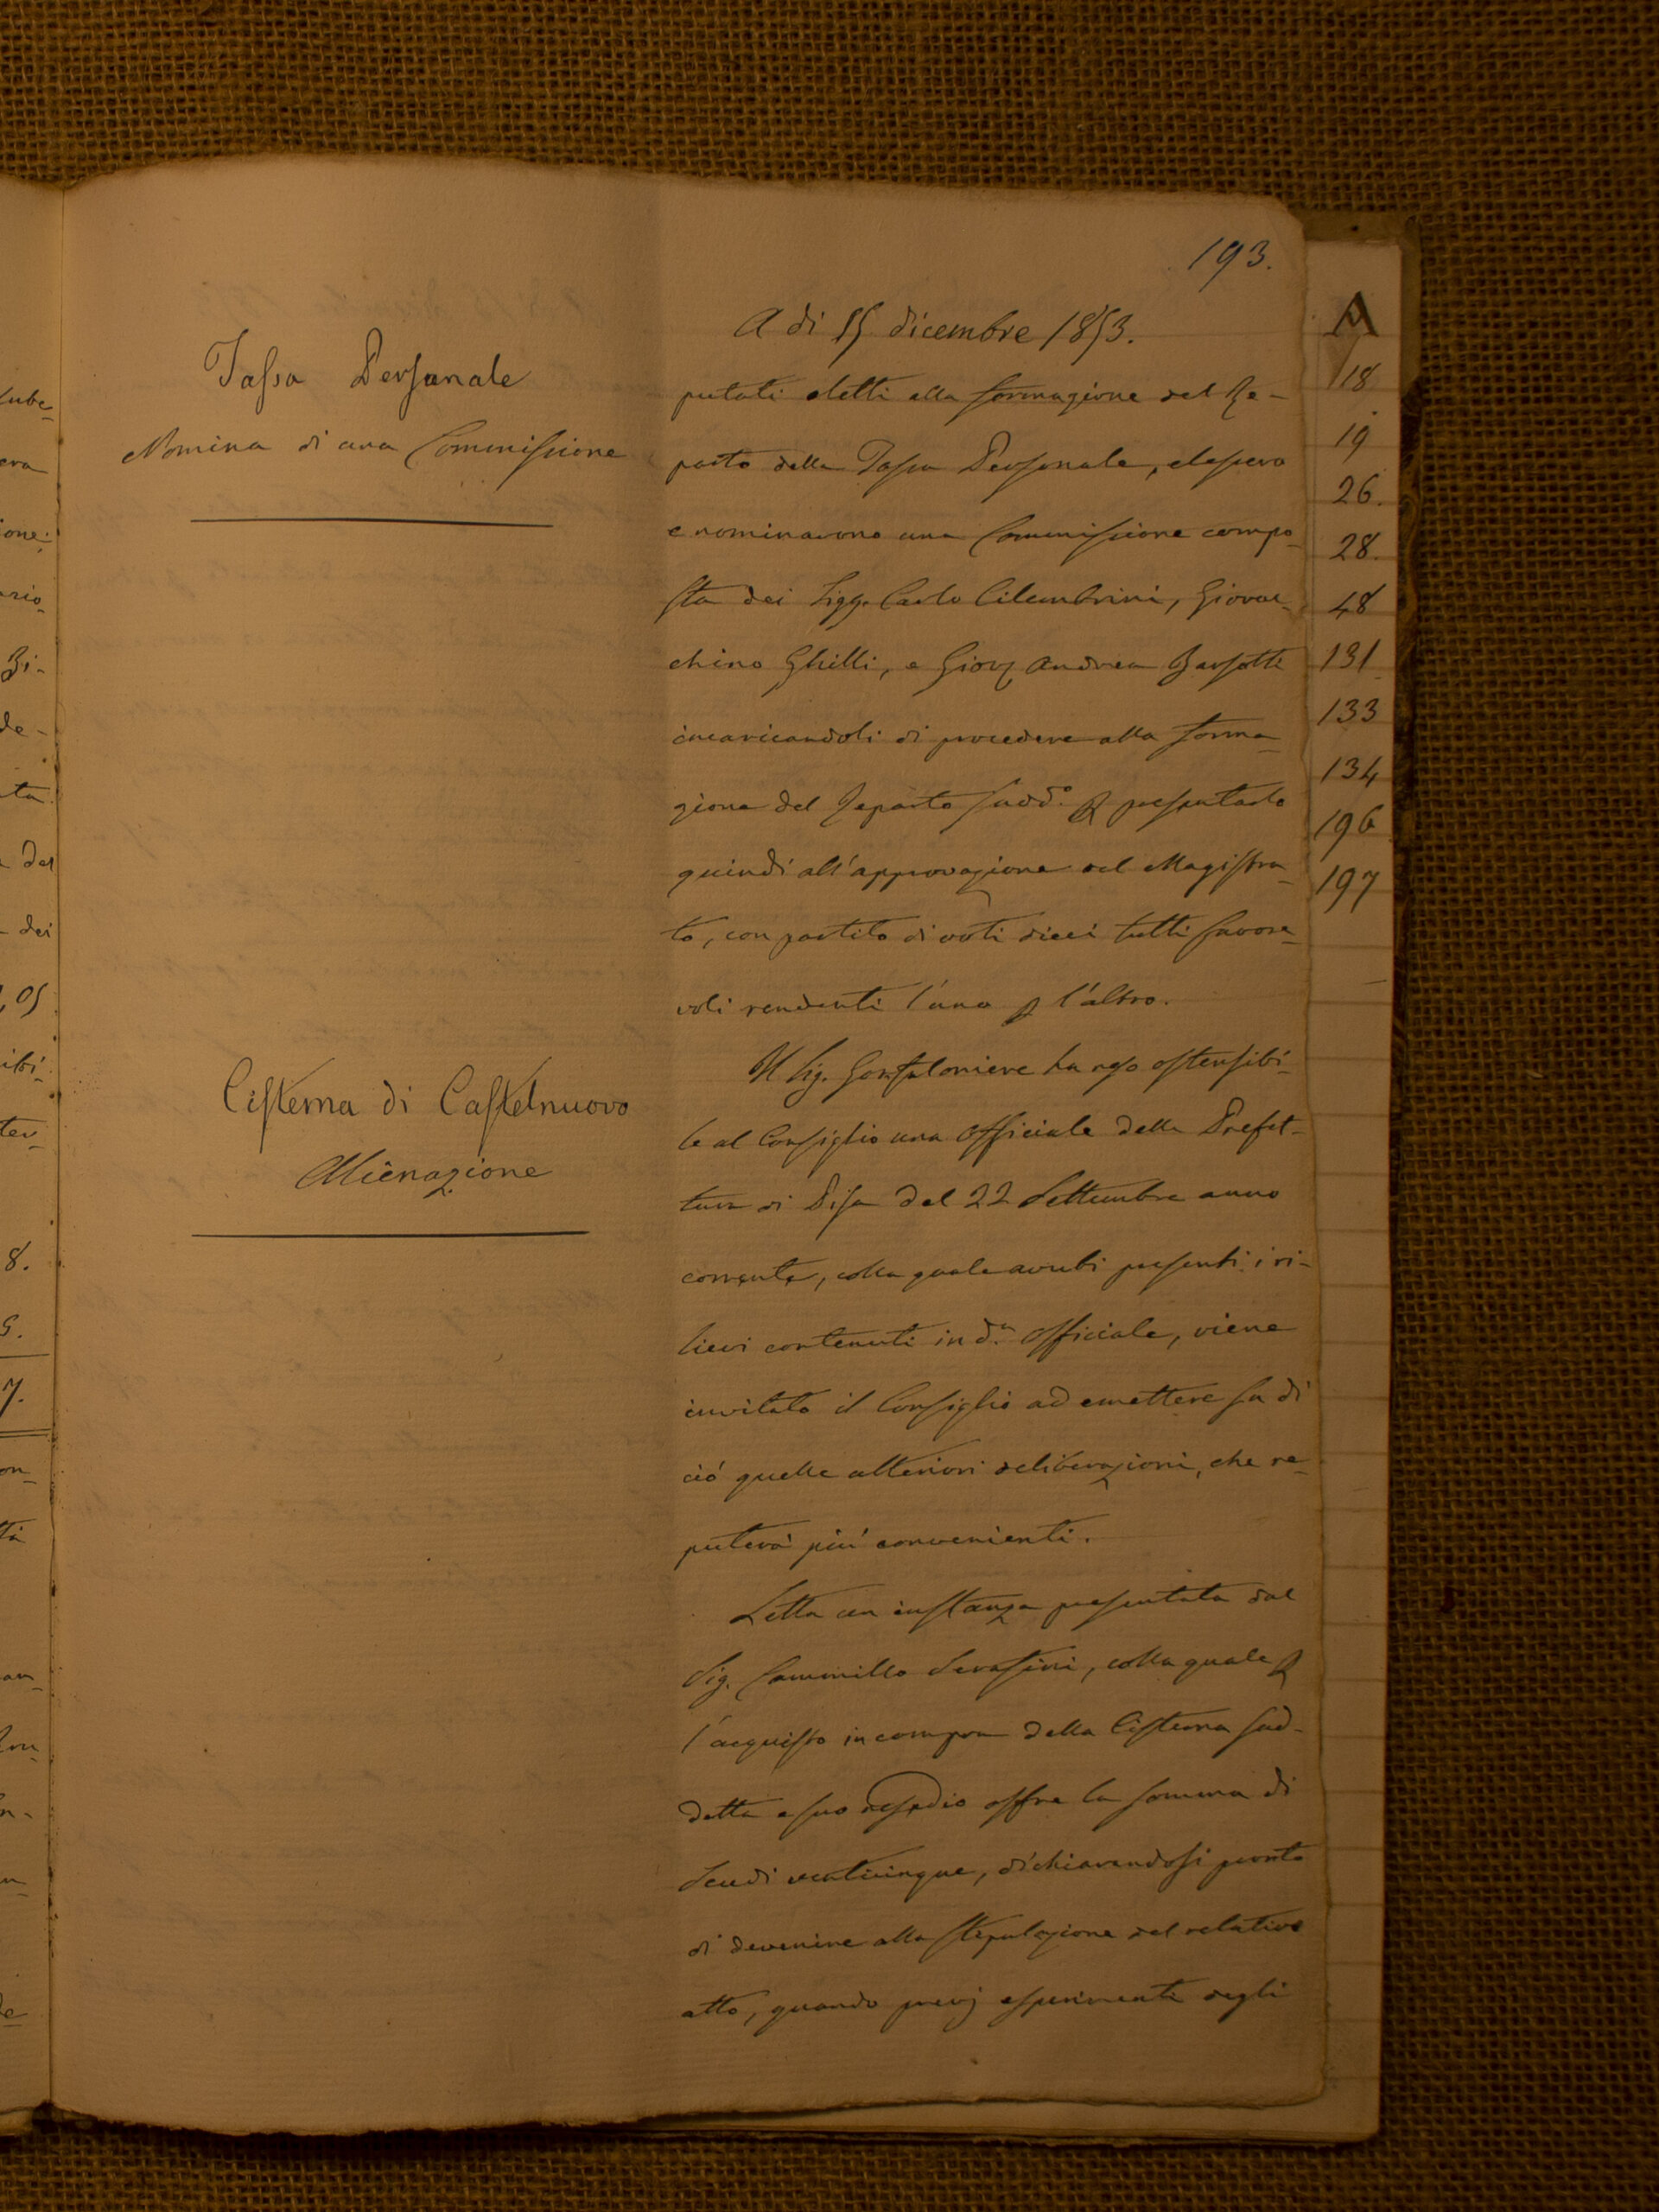 193.
A di 15 dicembre 1853.
Tassa Personale
Nomina di una Commissione
putati eletti alla formazione del Re-
parto della Tassa Personale, elessero
e nominarono una Commissione compo-
sta dei Sigg. Carlo Cilembrini, Giovac-
chino Ghilli, e Giov. Andrea Barsotti
incaricandoli di procedere alla forma-
zione del Reparto sudd.o p presentarlo
quindi all'approvazione del Magistra-
to, con partito di voti dieci tutti favore-
voli rendenti l'uno p l'altro.
Cisterna di Castelnuovo
Alienazione
Il Sig. Gonfaloniere ha reso ostensibi-
le al Consiglio una Officiale della Prefet-
tura di Pisa del 22 Settembre anno
corrente, colla quale avuti presenti i ri-
lievi contenuti in d.a Officiale, viene
invitato il Consiglio ad emettere su di
ciò quelle ulteriori deliberazioni, che re-
puterà più convenienti.
Letta un instanza presentata dal
Sig. Cammillo Serafini, colla quale p
l'acquisto in compra della Cisterna sud-
detta e suo offre la somma di
Scudi venticinque, dichiarandosi pronto
di devenire alla stipulazione del relativo
atto, quando previ esperimenti degli
A
18
19
26.
28.
48
131
133
134
196
197